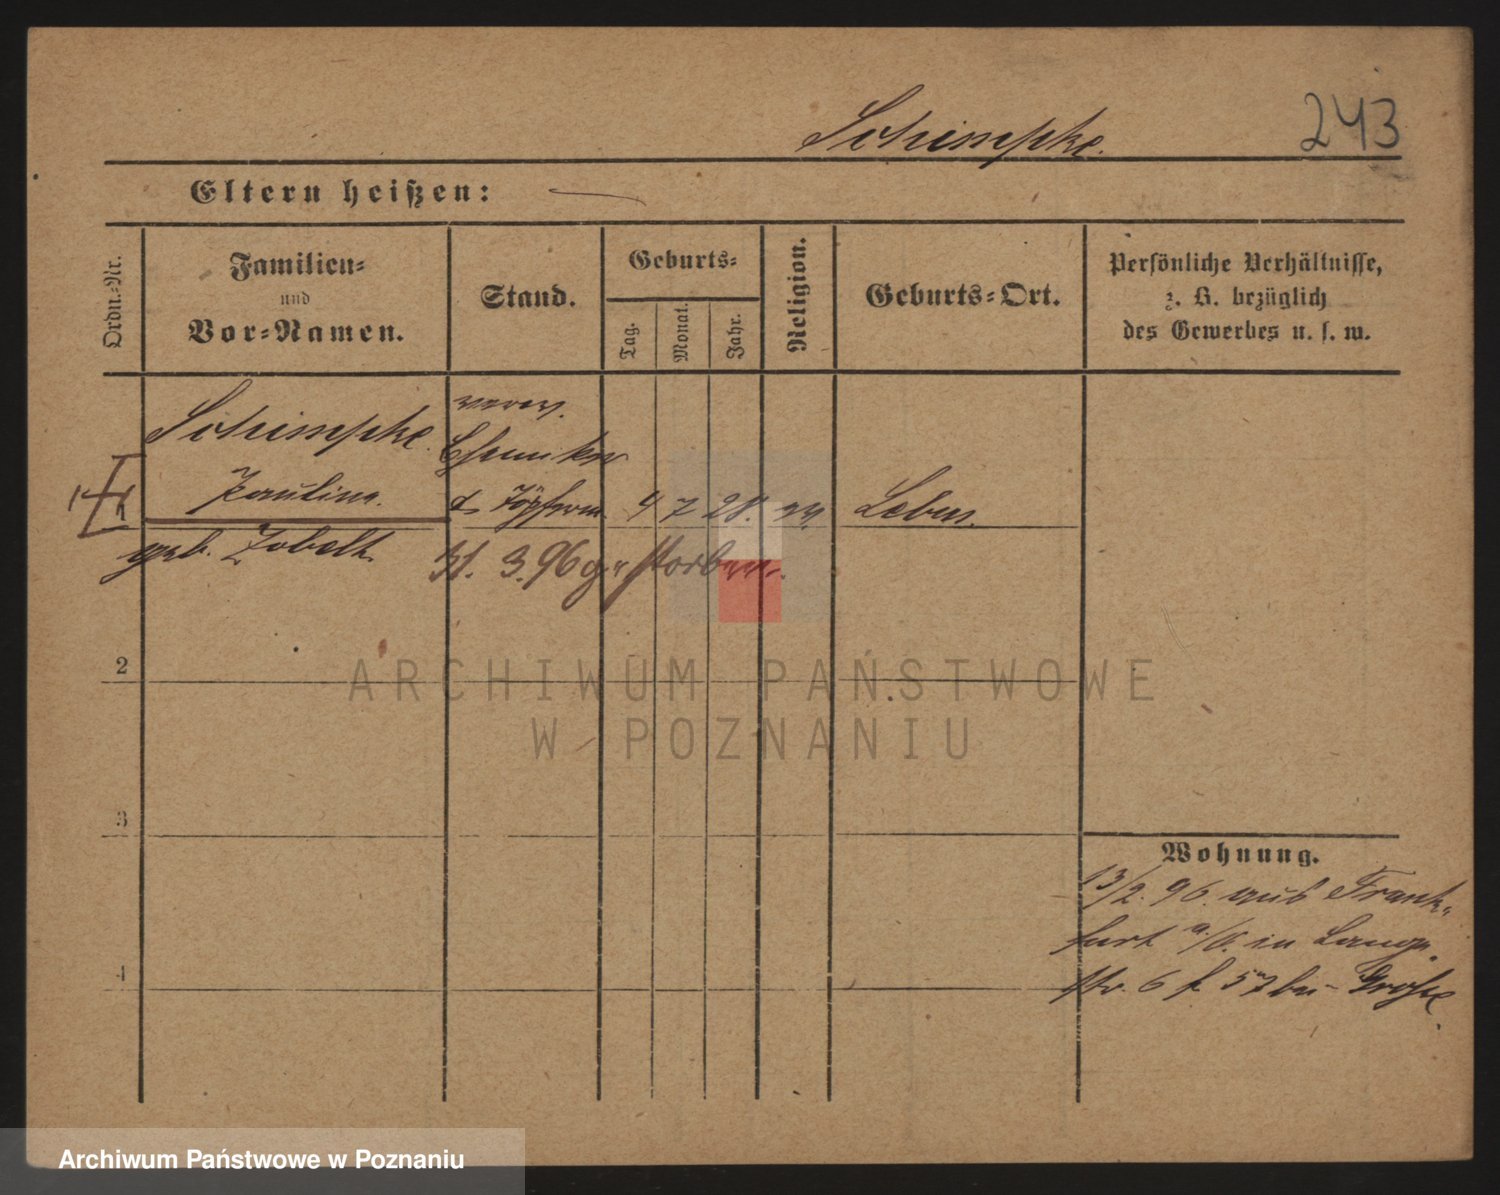 Schimpke.
243
Eltern heißen:
Ordn.-Nr.
Familien-
und
Vor-Namen.
Stand.
Geburts-
Tag.
Monat.
Jahr.
Religion.
Geburts-Ort.
Persönliche Verhältnisse,
z. B. bezüglich
des Gewerbes u. s. w.
Schimpke.
verw.
Pauline.
d. Töpferm
4 7 28. ev.
Lebus.
geb. Zobelt
31. 3. 96 gestorben.
2
3
4
Wohnung.
13/2. 96. aus Frank-
furt a/O. in Lange
str. 6 f. 57 bei Grosse.
ARCHIWUM PAŃSTWOWE
W POZNANIU
Archiwum Państwowe w Poznaniu